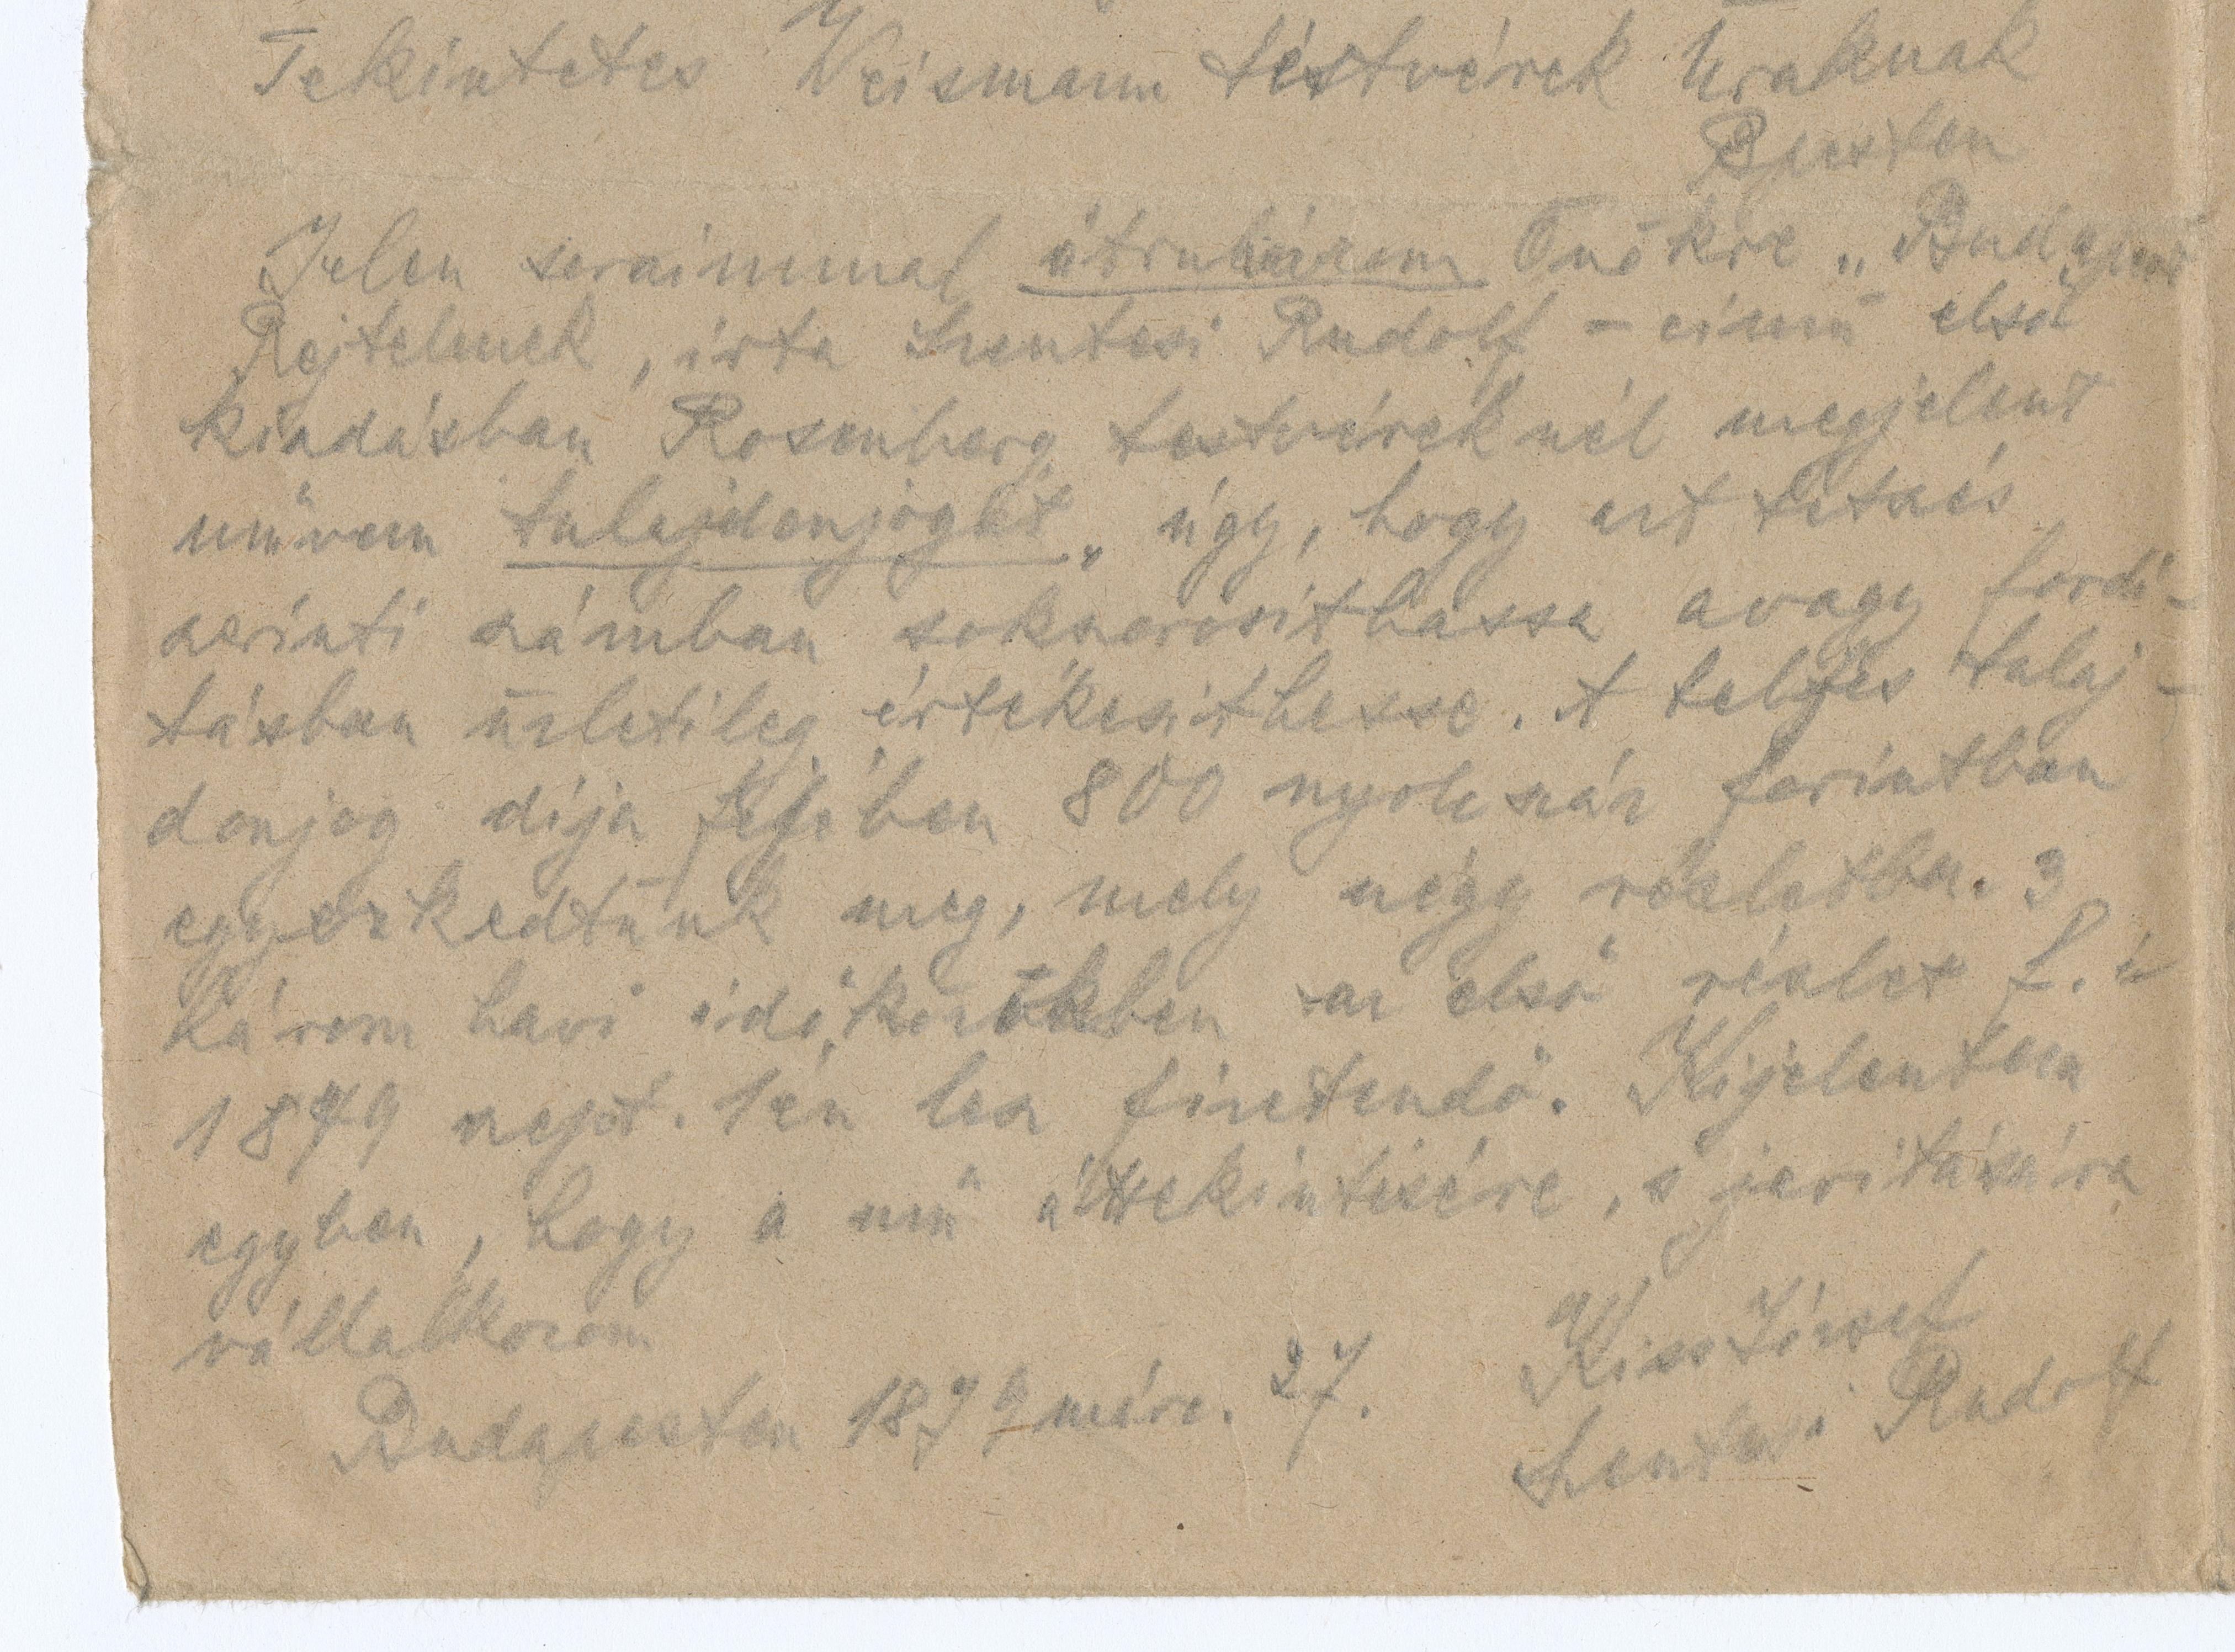 Tekintetes Weismann testvérek Uraknak
Bpesten
Jelen soraimmal átruházom Önökre „Budapest
Rejtelmek, irta Szentesi Rudolf – cimü első
kiadásban Rosenberg testvéreknél megjelent
művem tulajdonjogát, úgy, hogy azt tetszés
szerinti számban sokszorosithassa avagy fordi-
tásban üzletileg értékesithesse. A teljes tulaj-
donjog dija fejében 800 nyolcszáz forintban
egyezkedtünk meg, mely négy részletben. 3
három havi időközökben az első részlet f. é
1879 szept. 1én lesz fizetendő. Kijelentem
egyben, hogy a mű áttekintésére, s javitására
vállalkozom
Budapesten 1879 márc. 27.
Kiss József
Szentesi Rudolf